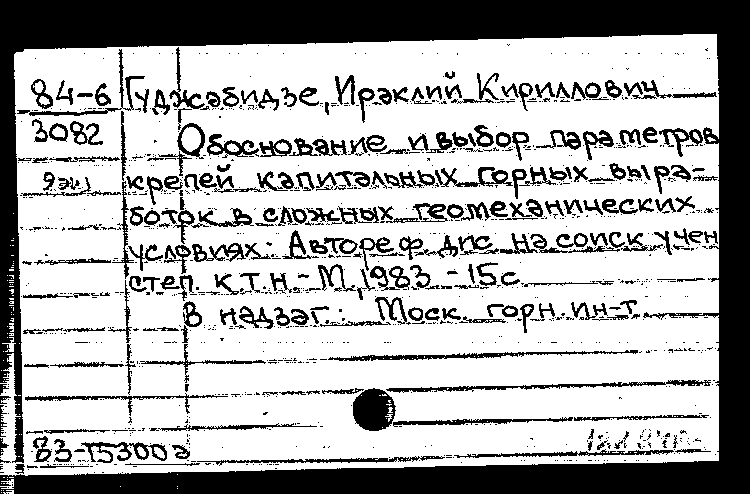 84-6 Гуджабидзе, Ираклий Кириллович
3082 Обоснование и выбор параметров
крепей капитальных горных выра-
боток в сложных геомеханических
условиях: Автореф. дис. на соиск учен
степ. к.т.н. - М, 1983 - 15с
В надзаг.: Моск. горн. ин-т.
83-15300а